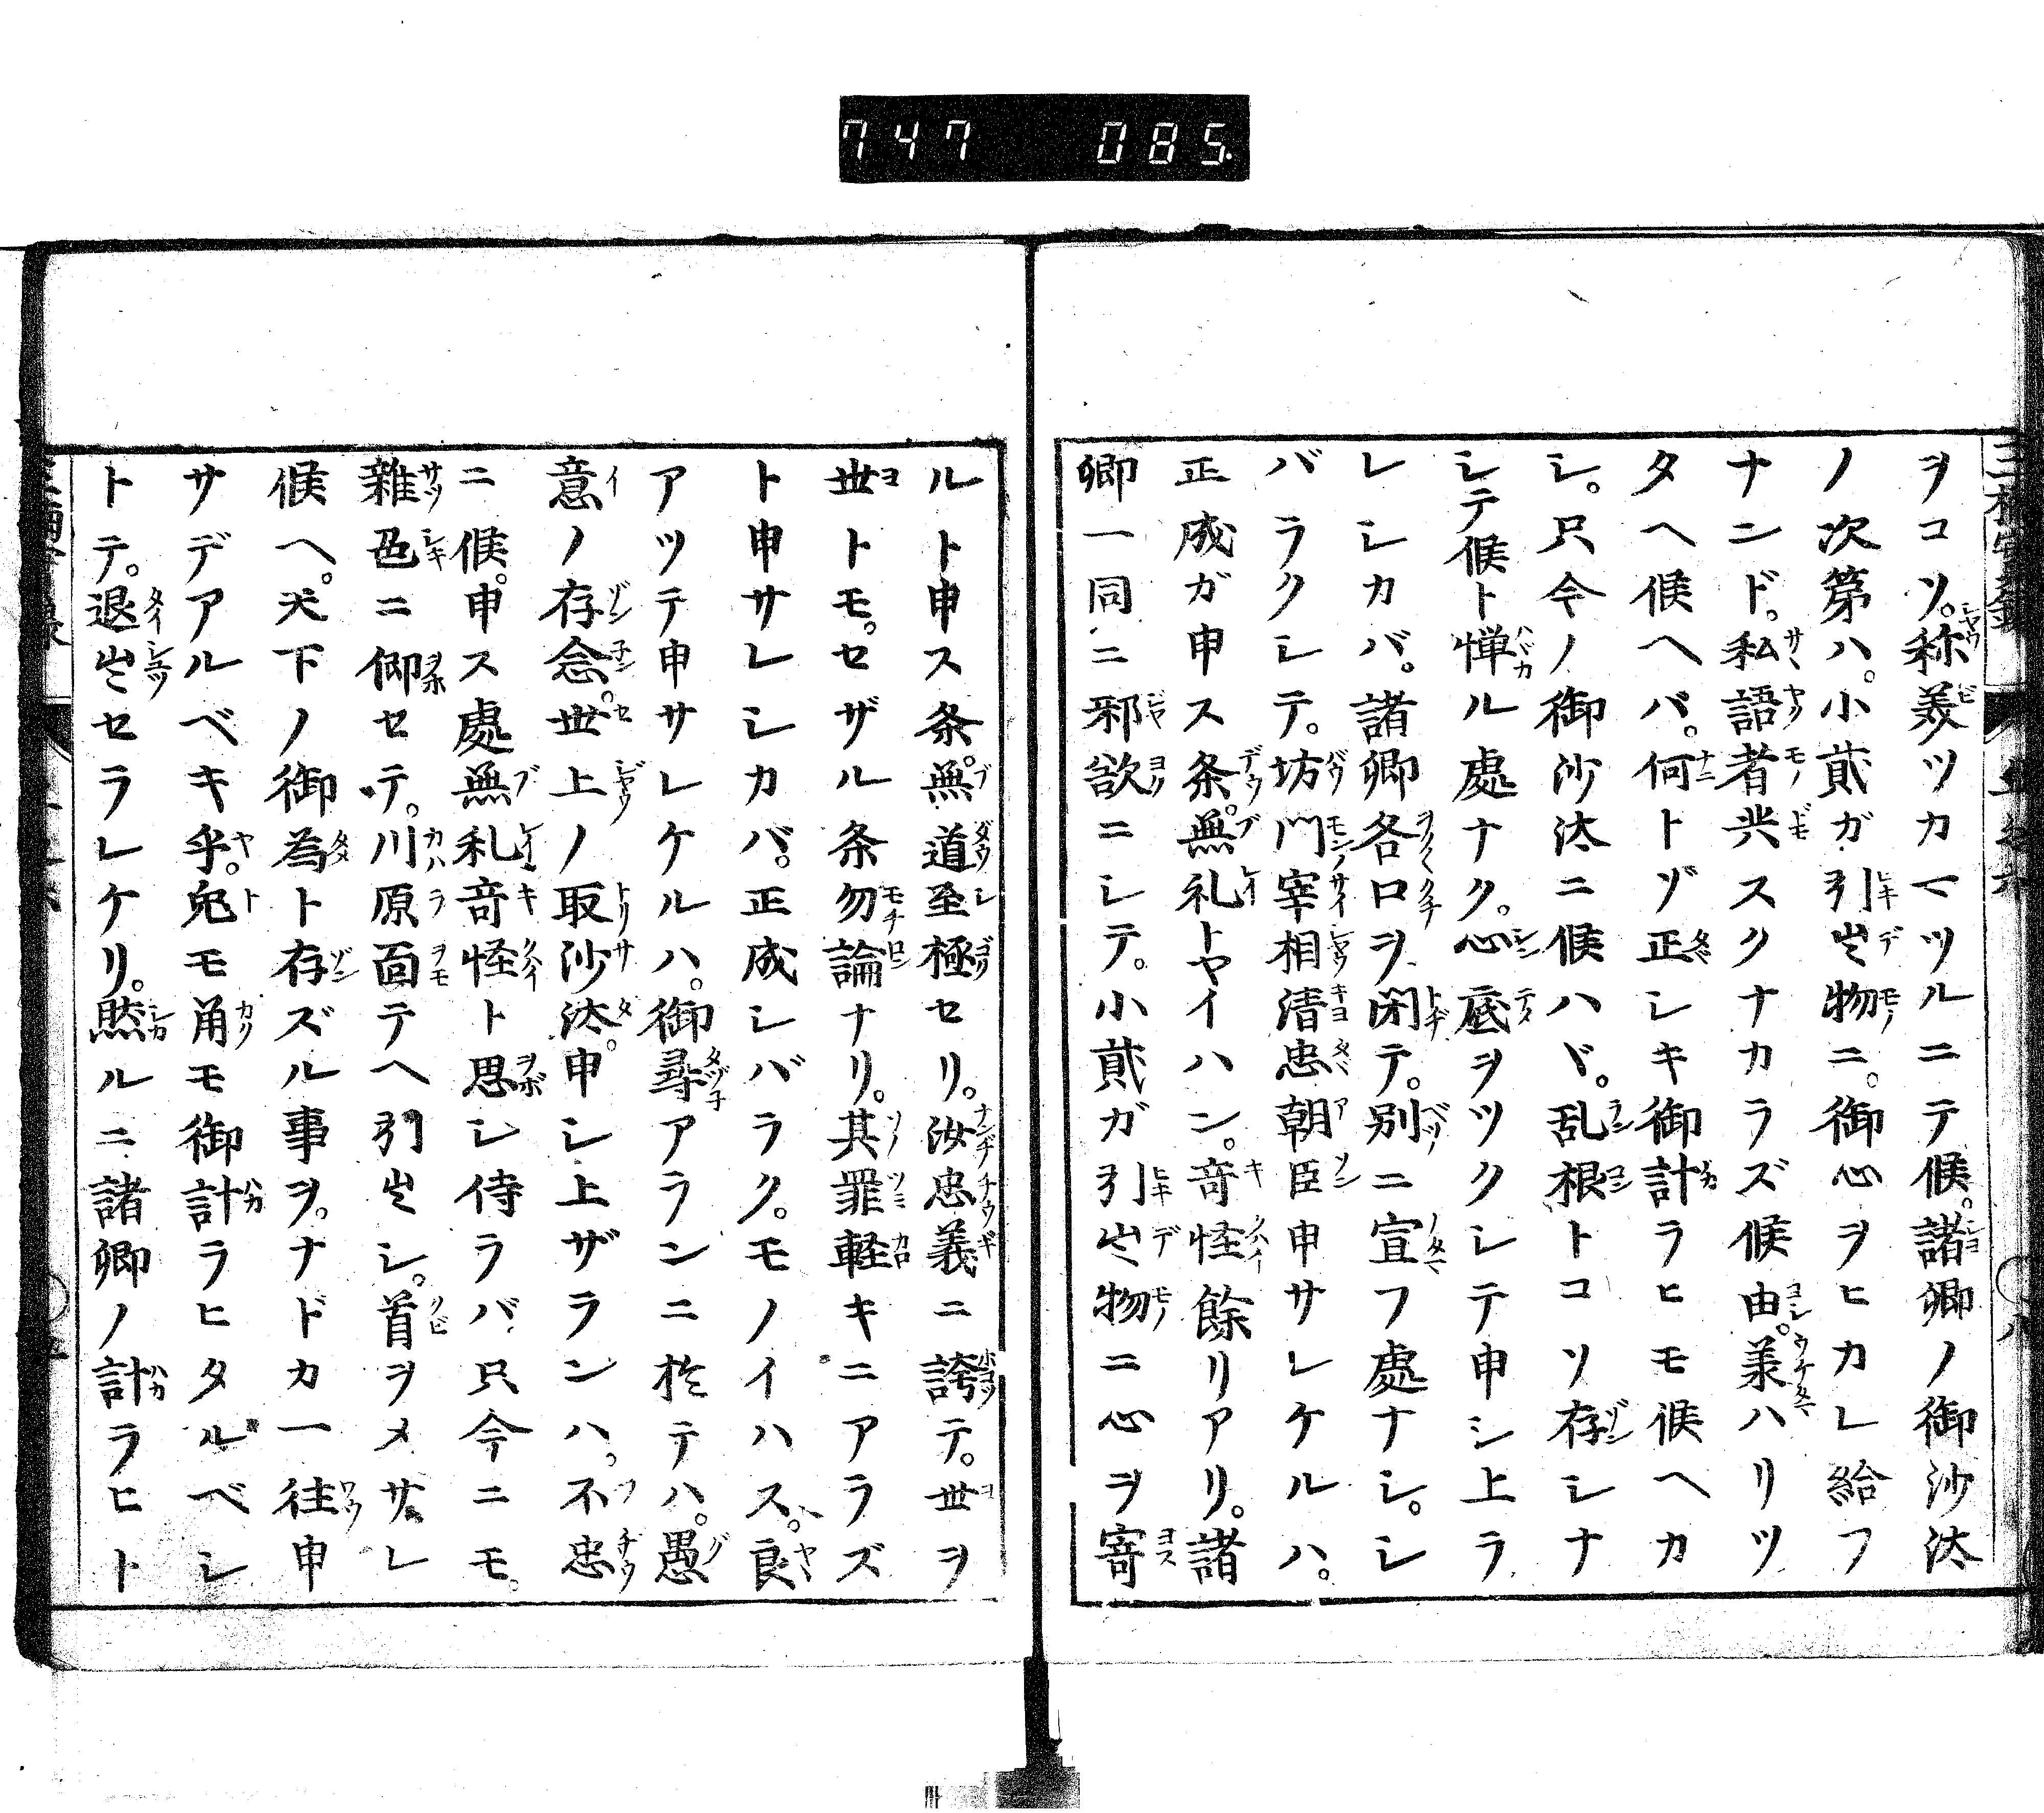 747 085.
ヲコソ。称美ツカマツルニテ候。諸卿ノ御沙汰
ノ次第ハ。小貮ガ引出物ニ。御心ヲヒカレ給フ
ナンド。私語者共スクナカラズ候由。羕ハリツ
タヘ候ヘバ。何トゾ正シキ御計ラヒモ候ヘカ
シ。只今ノ御沙汰ニ候ハヾ。乱根トコソ存シナ
シテ候ト憚ル處ナク。心底ヲツクシテ申シ上ラ
レシカバ。諸卿各口ヲ閉テ。別ニ宣フ處ナシ。シ
バラクシテ。坊門宰相清忠朝臣申サレケルハ。
正成ガ申ス条。無礼トヤイハン。竒怪餘リアリ。諸
卿一同ニ邪欲ニシテ。小貮ガ引出物ニ心ヲ寄
ルト申ス条。無道至極セリ。汝忠義ニ誇テ。世ヲ
世トモ。セザル条勿論ナリ。其罪軽キニアラズ
ト申サレシカバ。正成シバラク。モノイハス。良
アツテ申サレケルハ。御尋アランニ於テハ。愚
意ノ存念。世上ノ取沙汰。申シ上ザランハ。不忠
ニ候。申ス處無礼竒怪ト思シ侍ラバ只今ニモ。
雜色ニ仰セテ。川原面テヘ引出シ。首ヲメサレ
候ヘ。天下ノ御為ト存ズル事ヲ。ナドカ一往申
サデアルベキ乎。兎モ角モ御計ラヒタルベシ
トテ。退出セラレケリ。然ルニ諸卿ノ計ラヒト